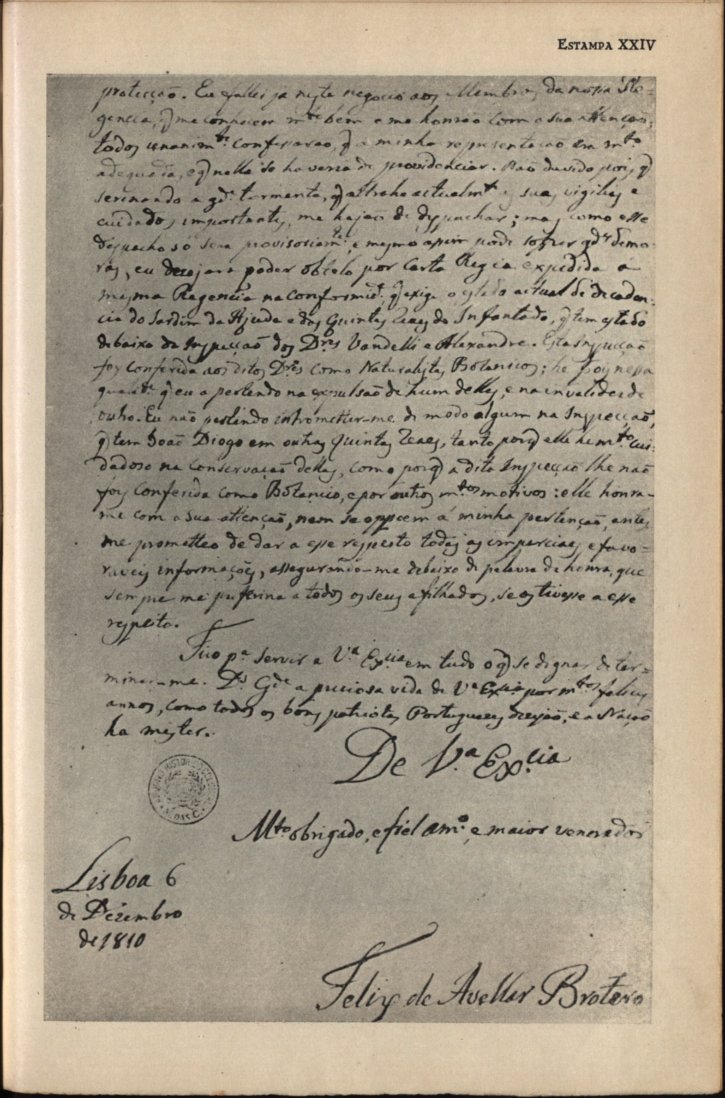 Estampa XXIV
protecção. Eu fallei ja neste negocio aos Membros da nossa Re-
gencia, q̃ me conhecem m.to bem e me honrão com a sua attenção;
todos unanim.te confessarão, q̃ a minha representação era m.to
adequada, e q̃ nella se haveria de providenciar. Não duvido pois, q̃
serenando a g.de tormenta, q̃ attrahe actualm.te as suas vigilias e
cuidados importantes, me hajão de despachar; mas como esse
despacho só será provisoriam.te, e mesmo assim pode sofrer g.des demo-
ras, eu desejara poder obtelo por Carta Regia expedida á
mesma Regencia na conformid.e q̃ exige o estado actual de decaden-
cia do Jardim da Ajuda e das Quintas Reaes do Infantado, q̃ tem estado
debaixo da Inspecção dos D.res Vandelli e Alexandre. Esta Inspecção
foy conferida aos ditos D.res como Naturalistas Botanicos; he pois nessa
qualid.e q̃ eu a pertendo na expulsão de hum delles, e na invalidez de
outro. Eu não pertendo intrometter-me de modo algum na Inspecção,
q̃ tem João Diogo em outras Quintas Reaes, tanto porq̃ elle he m.to cui-
dadoso na conservação dellas, como porq̃ a dita Inspecção lhe não
foy conferida como Botanico, e por outros m.tos motivos: elle honra-
me com a sua attenção, nem se oppoem á minha pertenção, antes
me prometteo de dar a esse respeito todas as imparciaes e favo-
raveis informações, assegurando-me debaixo de palavra de honra, que
sempre me preferiria a todos os seus afilhados, se estivesse a esse
respeito.
Fico p.a servir a V.a Ex.cia em tudo o q̃ se dignar deter-
minar-me. D.s G.de a preciosa vida de V.a Ex.cia por m.tos felices
annos, como todos os bons patriotas Portuguezes desejão, e a Nação
ha mister.
De V.a Ex.cia
M.to obrigado, e fiel am.o e maior venerador
Lisboa 6
de Dezembro
de 1810
Felix de Avellar Brotero